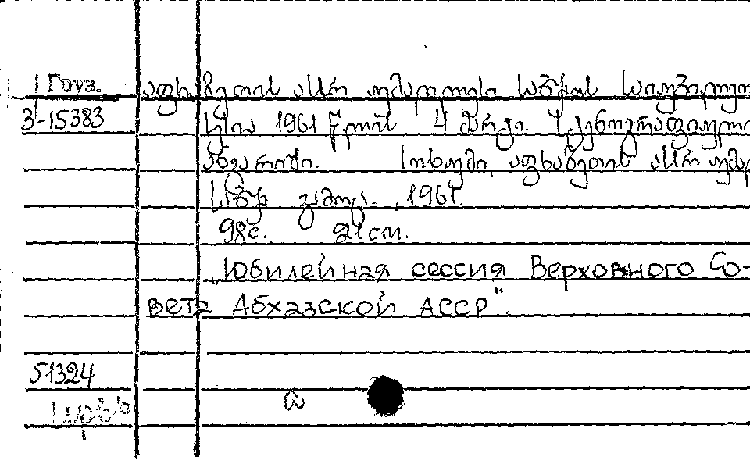 აფხაზეთის ასსრ უმაღლესი საბჭოს საიუბილეო
3-15383
სესია 1961 წლის 4 მარტი. სტენოგრაფიული
ანგარიში. სოხუმი, აფხაზეთის ასსრ უმაღ
საბჭ. გამოც., 1961
98с. 21см.
„Юбилейная сессия Верховного Со-
вета Абхазской АССР".
51324